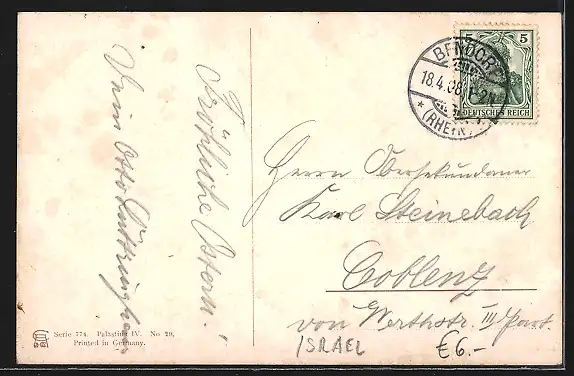 Fröhliche Ostern!
Dein Otto
Serie 774. Palästina IV. No 29.
Printed in Germany.
BENDORF
18.4.08.
* (RHEIN)
5 5
DEUTSCHES REICH
Herrn Obersekundaner
Karl Steinebach
Coblenz
von Werthstr. III Part.
ISRAEL
€6.-